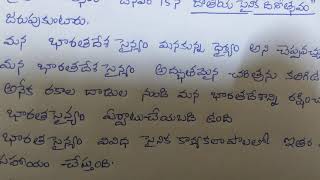 జనవరి 15 న "జాతీయ సైనిక దినోత్సవం"
జరుపుకుంటారు.
మన భారతదేశ సైన్యం మనకున్న ధైర్యం అని చెప్పవచ్చు
మన భారతదేశ సైన్యం అద్భుతమైన చరిత్రను కలిగి
అనేక రకాల దాడుల నుండి మన భారతదేశాన్ని రక్షించ
భారత సైన్యం ఏర్పాటు చేయబడి ఉంది
భారతదేశ సైన్యం వివిధ సైనిక కార్యకలాపాలలో ఇతర
సహాయం చేస్తుంది.